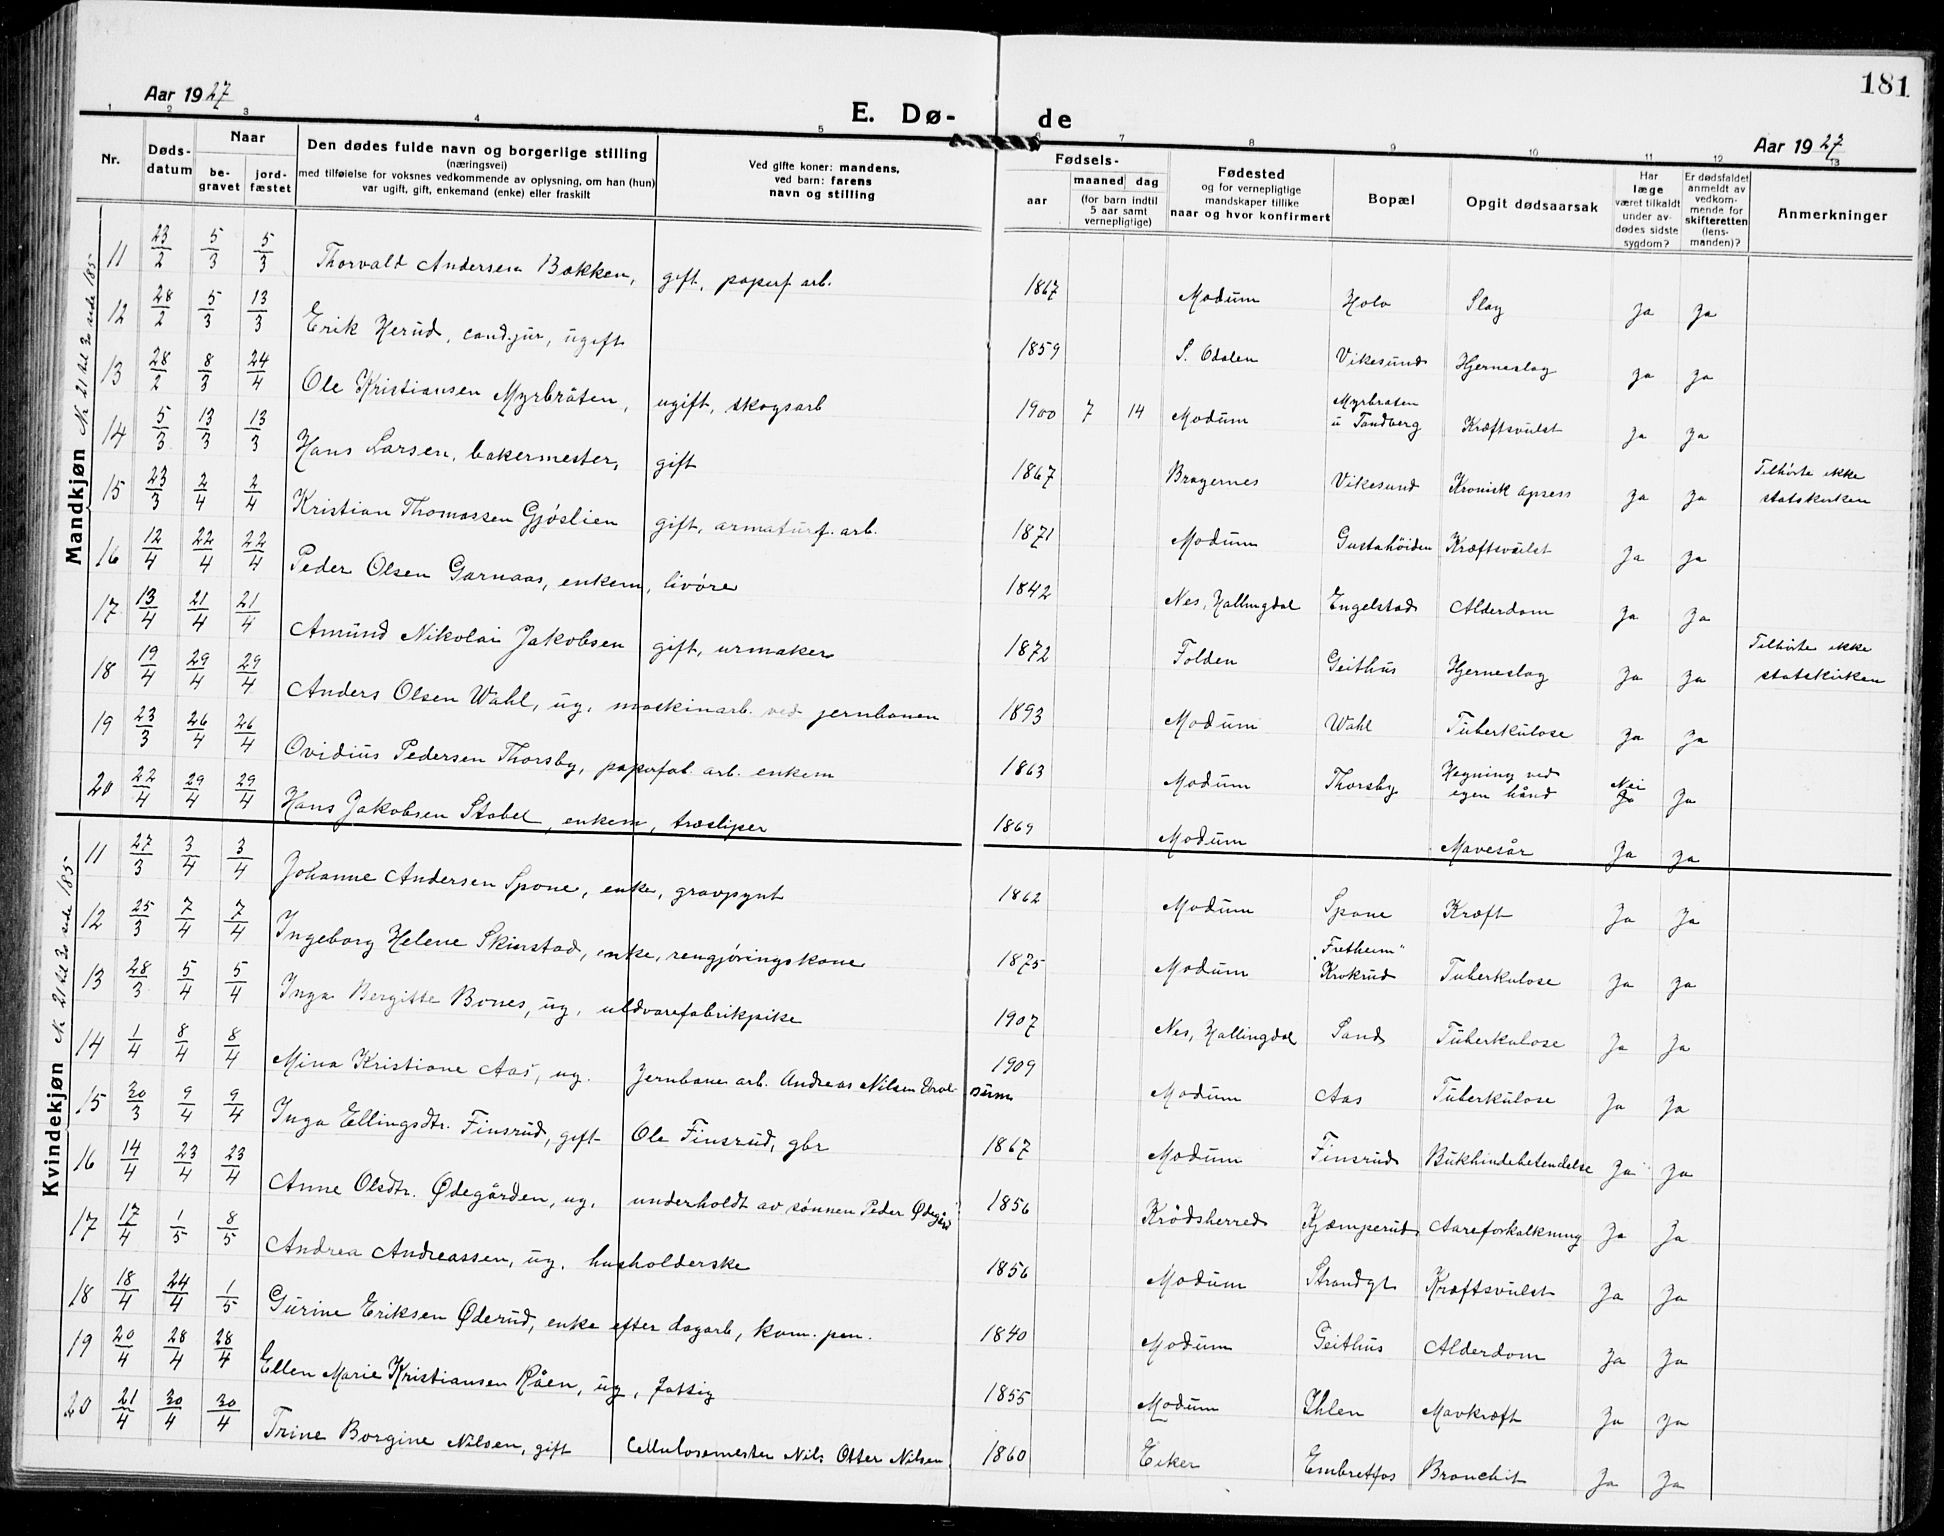 181
Aar 1927
E. Dø- de
Aar 1927
1 2 3 4 5 6 7 8 9 10 11 12 13
Nr. Døds-datum Naar be-gravet jord-fæstet
Den dødes fulde navn og borgerlige stilling (næringsvei) med tilføielse for voksnes vedkommende av oplysning, om han (hun) var ugift, gift, enkemand (enke) eller fraskilt
Ved gifte koner: mandens, ved barn: farens navn og stilling
Fødsels- aar maaned dag (for barn indtil 5 aar samt vernepligtige)
Fødested og for vernepligtige mandskaper tillike naar og hvor konfirmert
Bopæl
Opgit dødsaarsak
Har læge været tilkaldt under av-dødes sidste sygdom?
Er dødsfaldet anmeldt av vedkom-mende for skifteretten (lens-manden)?
Anmerkninger
Mandkjøn Nr 21 til 30 side 185
11 23/2 5/3 5/3 Thorvald Andersen Bakken, gift, paperf arb. 1867 Modum Holo Slag Ja Ja
12 28/2 5/3 13/3 Erik Herud, cand.jur, ugift 1859 S. Odalen Vikesund Hjerneslag Ja Ja
13 28/2 8/3 24/4 Ole Kristiansen Myrbråten, ugift, skogsarb 1900 7 14 Modum Myrbraten u Tandberg Kræftsvulst Ja Ja
14 5/3 13/3 13/3 Hans Larsen, bakermester, gift 1867 Bragernes Vikesund Kronisk apsess Ja Ja Tilhörte ikke statskirken
15 23/3 2/4 2/4 Kristian Thomassen Gjøslien gift, armaturf. arb. 1871 Modum Gustahöiden Kræftsvulst Ja Ja
16 12/4 22/4 22/4 Peder Olsen Garnaas, enkem, livöre 1842 Nes, Hallingdal Engelstad Alderdom Ja Ja
17 13/4 21/4 21/4 Amund Nikolai Jakobsen gift, urmaker 1872 Folden Geithus Hjerneslag Ja Ja Tilhörte ikke statskirken
18 19/4 29/4 29/4 Anders Olsen Wahl, ug, maskinarb. ved jernbanen 1893 Modum Wahl Tuberkulose Ja Ja
19 23/3 26/4 26/4 Ovidius Pedersen Thorsby, papirfab. arb. enkem 1863 Modum Thorsby Hegning ved egen hånd Nei Ja Ja
20 22/4 29/4 29/4 Hans Jakobsen Stabel, enkem, træsliper 1869 Modum Mavesår Ja Ja
Kvindekjøn Nr 21 til 30 side 185
11 27/3 3/4 3/4 Johanne Andersen Spone, enke, gravpynt 1862 Modum Spone Kræft Ja Ja
12 25/3 7/4 7/4 Ingeborg Helene Skinstad, enke, rengjøringskone 1875 Modum "Fretheim" Krokrud Tuberkulose Ja Ja
13 28/3 5/4 5/4 Inga Bergitte Bones, ug, uldvarefabrikpike 1907 Nes, Hallingdal Sand Tuberkulose Ja Ja
14 1/4 8/4 8/4 Mina Kristiane Aas, ug. Jernbane arb. Andreas Nilsen 1909 Modum Aas Tuberkulose Ja Ja
15 30/3 9/4 9/4 Inga Ellingsdtr. Finsrud, gift Ole Finsrud, gbr 1867 Modum Finsrud Bukhindebetendelse Ja Ja
16 14/4 23/4 23/4 Anne Olsdtr. Ødegården, ug, underholdt av sønnen Peder Ødegård 1856 Krödsherred Kjæmperud Aareforkalkning Ja Ja
17 17/4 1/5 8/5 Andrea Andreassen, ug, husholderske 1856 Modum Strandgt Kræftsvulst Ja Ja
18 18/4 24/4 1/5 Gurine Eriksen Øderud, enke efter dagarb, kom. pen. 1840 Modum Geithus Alderdom Ja Ja
19 20/4 28/4 28/4 Ellen Marie Kristiansen Råen, ug, fattig 1855 Modum Ihlen Mavkræft Ja Ja
20 21/4 30/4 30/4 Trine Borgine Nilsen, gift Cellulosemester Nils Otter Nilsen 1860 Eiker Embretfos Bronchit Ja Ja